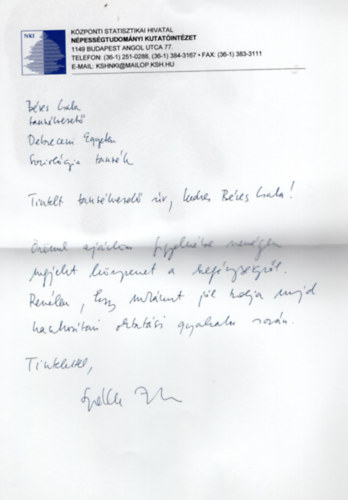 NKI
KÖZPONTI STATISZTIKAI HIVATAL
NÉPESSÉGTUDOMÁNYI KUTATÓINTÉZET
1149 BUDAPEST ANGOL UTCA 77.
TELEFON: (36-1) 251-0288, (36-1) 384-3167 • FAX: (36-1) 383-3111
E-MAIL: KSHNKI@MAILOP.KSH.HU
Béres Csaba
tanszékvezető
Debreceni Egyetem
Szociológia tanszék
Tisztelt tanszékvezető úr, kedves Béres Csaba!
Örömmel ajánlom figyelmébe nemrégen
megjelent könyvemet a szegénységről.
Remélem, hogy múlt jól tudja majd
hasznosítani oktatási gyakorlata során.
Tisztelettel,